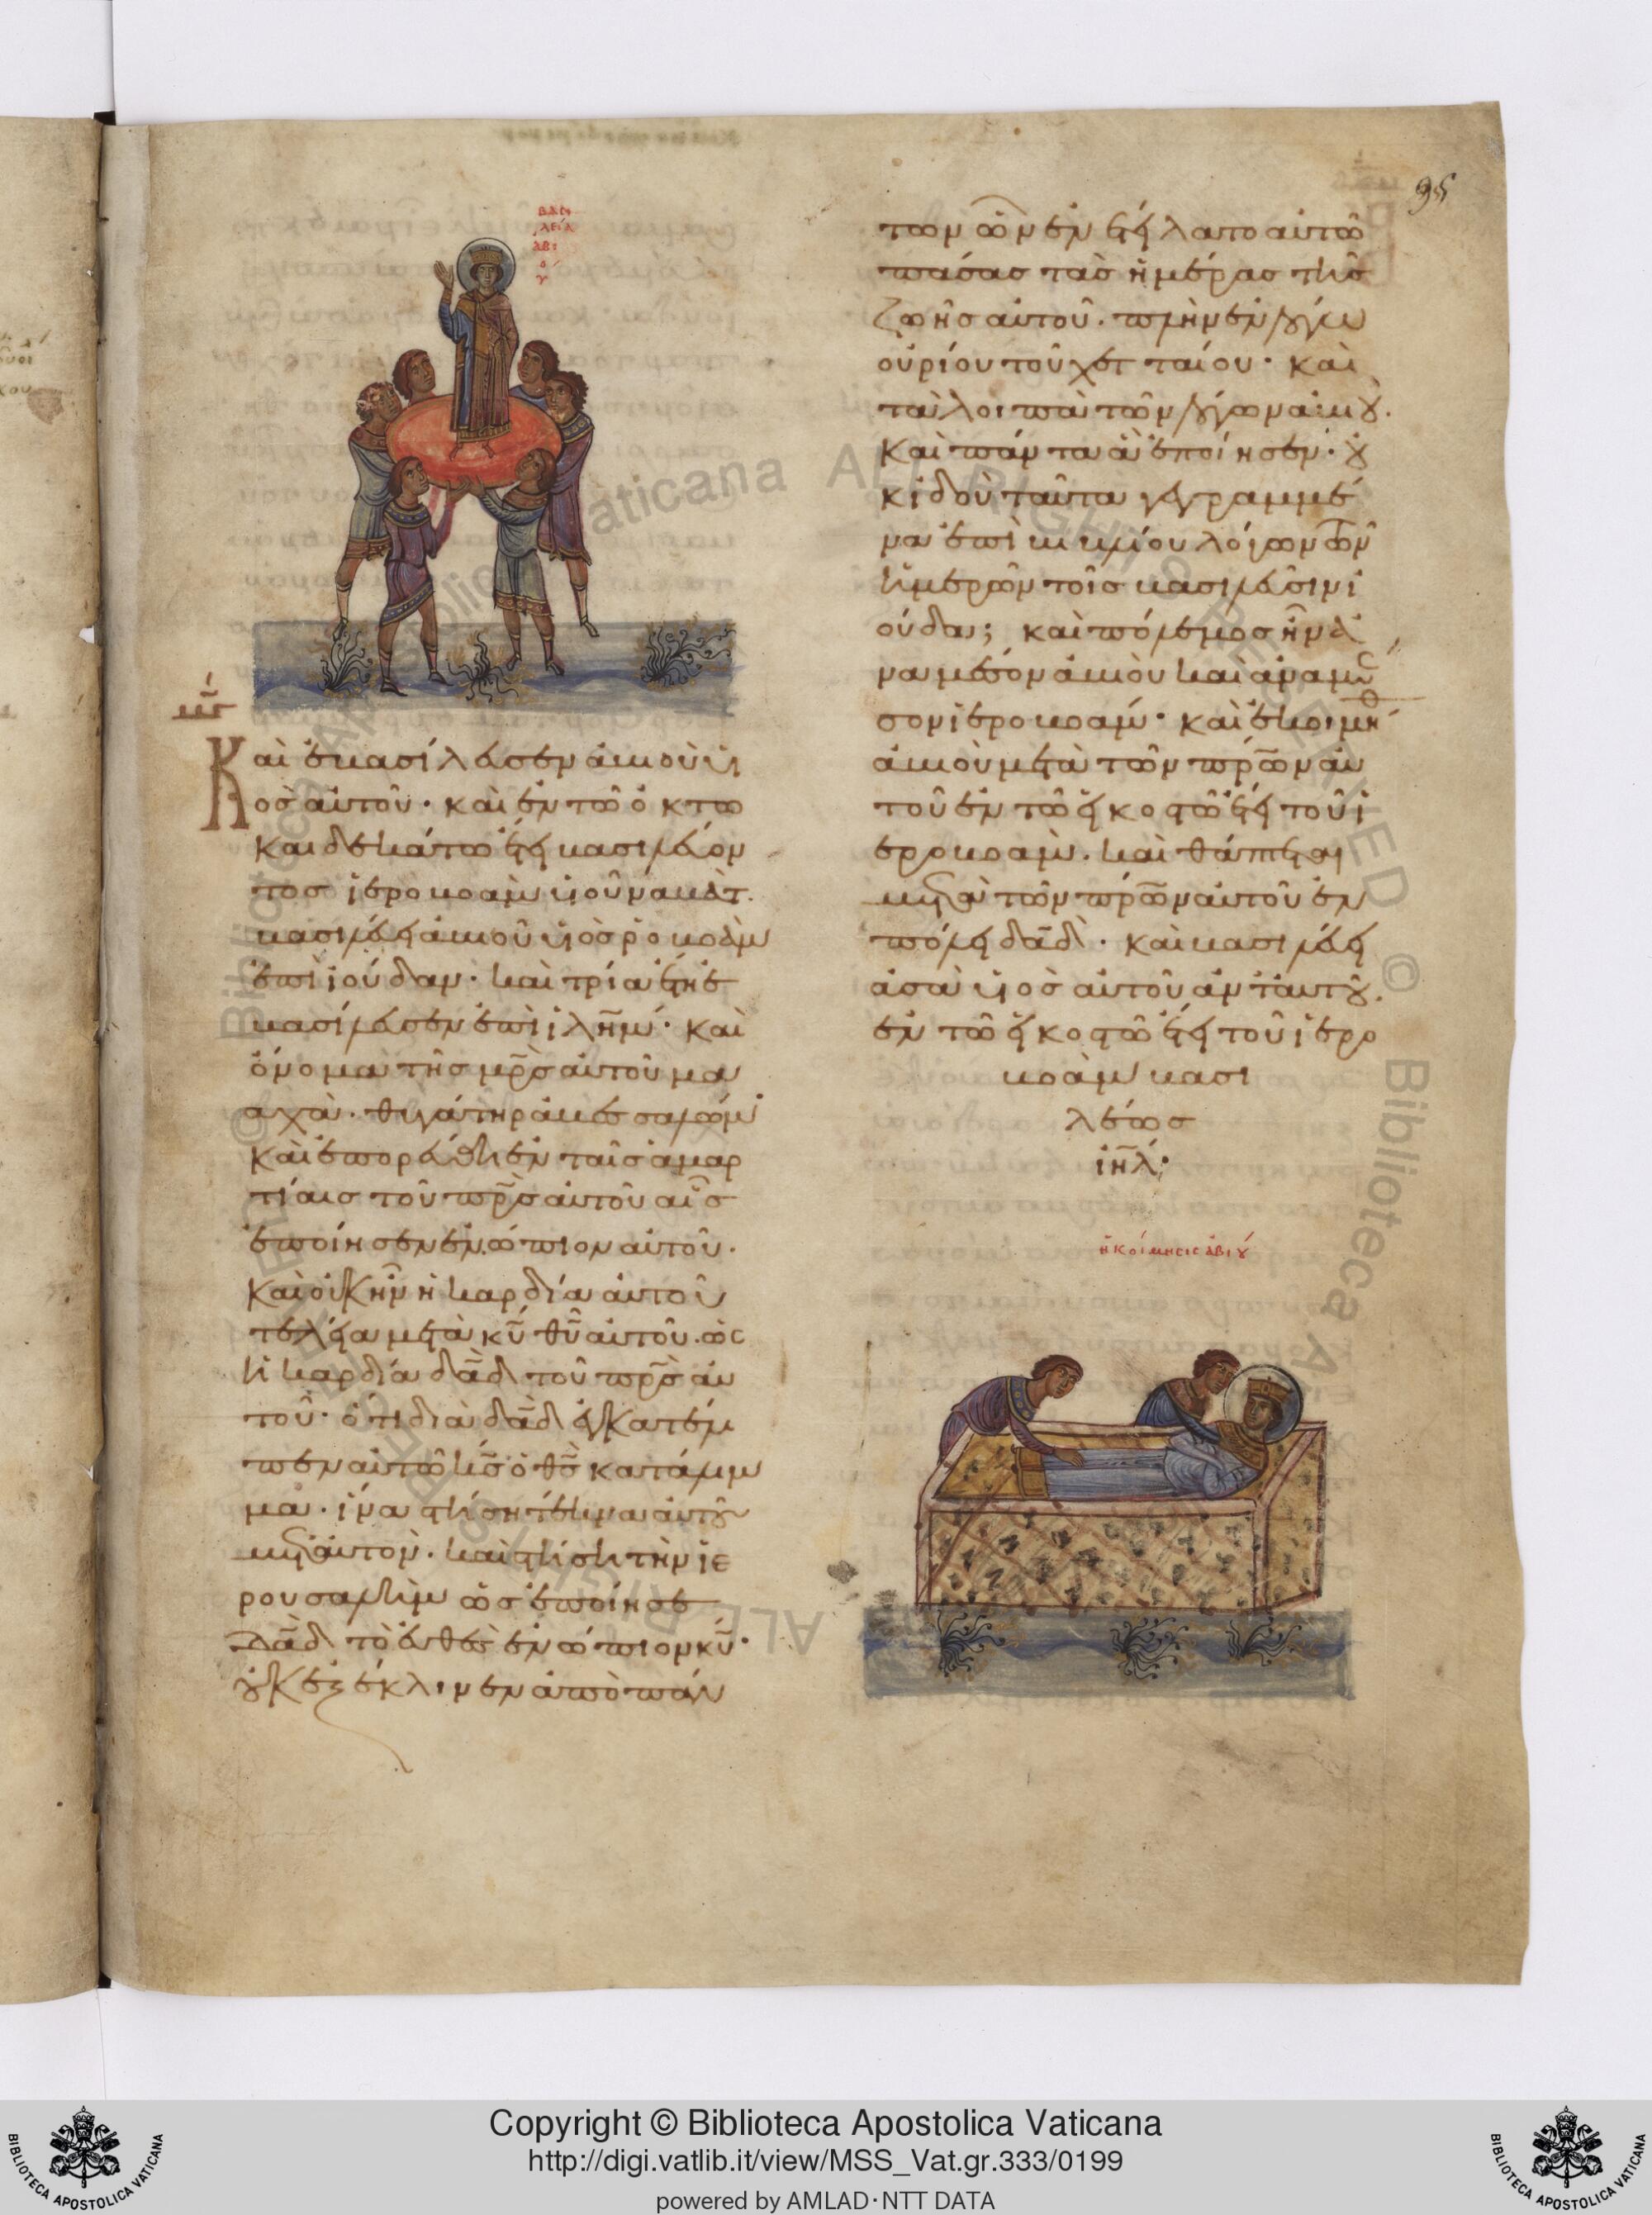 95
ΒΑϹΙ
ΛΕΙΑ
ΑΒΙ
Ο
Υ
Καὶ ἐβασίλευσεν ἀβιοὺ υἱ
ὸσ αὐτοῦ· καὶ ἐν τῶ ὀκτω
καιδεκάτω ἔτει βασιλεύον
τοσ ἱεροβοὰμ υἱοῦ ναβὰτ.
βασιλεύει ἀβιοῦ υἱὸσ ροβοὰμ
ἐπὶ ἰούδαν· καὶ τρία ἔτη ἐ
βασίλευσεν ἐπὶ ἰλῆμ· καὶ
ὄνομα τῆσ μρ̅σ αὐτοῦ μα
αχὰ· θυγάτηρ ἀβεσσαλώμ·
καὶ ἐπορεύθη ἐν ταῖσ ἁμαρ
τίαισ τοῦ πρ̅σ αὐτοῦ αἷσ
ἐποίησεν ἐνώπιον αὐτοῦ·
καὶ οὐκ ἦν ἡ καρδία αὐτοῦ
τελεία μετὰ κ̅υ θ̅υ αὐτοῦ· ὡσ
ἡ καρδία δα̅δ τοῦ πρ̅σ αὐ
τοῦ· ὅτι διὰ δα̅δ ἐγκατέλι
πεν αὐτῶ κ̅σ ὁ θ̅σ κατάλιμ
μα· ἵνα στήση τέκνα αὐτοῦ
μετ' αὐτὸν· καὶ στήση τὴν ἱε
ρουσαλὴμ ὡσ ἐποίησε
δα̅δ τὸ εὐθὲσ ἐνώπιον κ̅υ·
οὐκ ἐξέκλινεν ἀπὸ πάν
των ὧν ἐνετείλατο αὐτῶ
πάσασ τὰσ ἡμέρασ τῆσ
ζωῆσ αὐτοῦ· πλὴν ἐν λόγω
οὐρίου τοῦ χετταίου· καὶ
τὰ λοιπὰ τῶν λόγων ἀβιοῦ.
καὶ πάντα ἃ ἐποίησεν· οὐ
κ ἰδοὺ ταῦτα γεγραμμέ
να ἐπὶ βιβλίου λόγων τῶν
ἡμερῶν τοῖσ βασιλεῦσιν ἰ
ούδα; καὶ πόλεμοσ ἦν ἀ
να μέσον ἀβιοὺ καὶ ἀναμέ
σον ἱεροβοάμ· καὶ ἐκοιμήθ
ἀβιοὺ μετὰ τῶν πρ̅ων αὐ
τοῦ ἐν τῶ εἰκοστῶ ἔτει τοῦ ἱ
εροβοὰμ· καὶ θάπτεται
μετὰ τῶν πρ̅ων αὐτοῦ ἐν
πόλει δα̅δ· καὶ βασιλεύει
ἀσὰ υἱὸσ αὐτοῦ ἀντ' αὐτοῦ.
ἐν τῶ εἰκοστῶ ἔτει τοῦ ἱερο
βοὰμ βασι
λέωσ
ἰηλ·
ἡ κοίμησισ ἀβιού
Copyright © Biblioteca Apostolica Vaticana
http://digi.vatlib.it/view/MSS_Vat.gr.333/0199
powered by AMLAD·NTT DATA
BIBLIOTECA APOSTOLICA VATICANA
BIBLIOTECA APOSTOLICA VATICANA